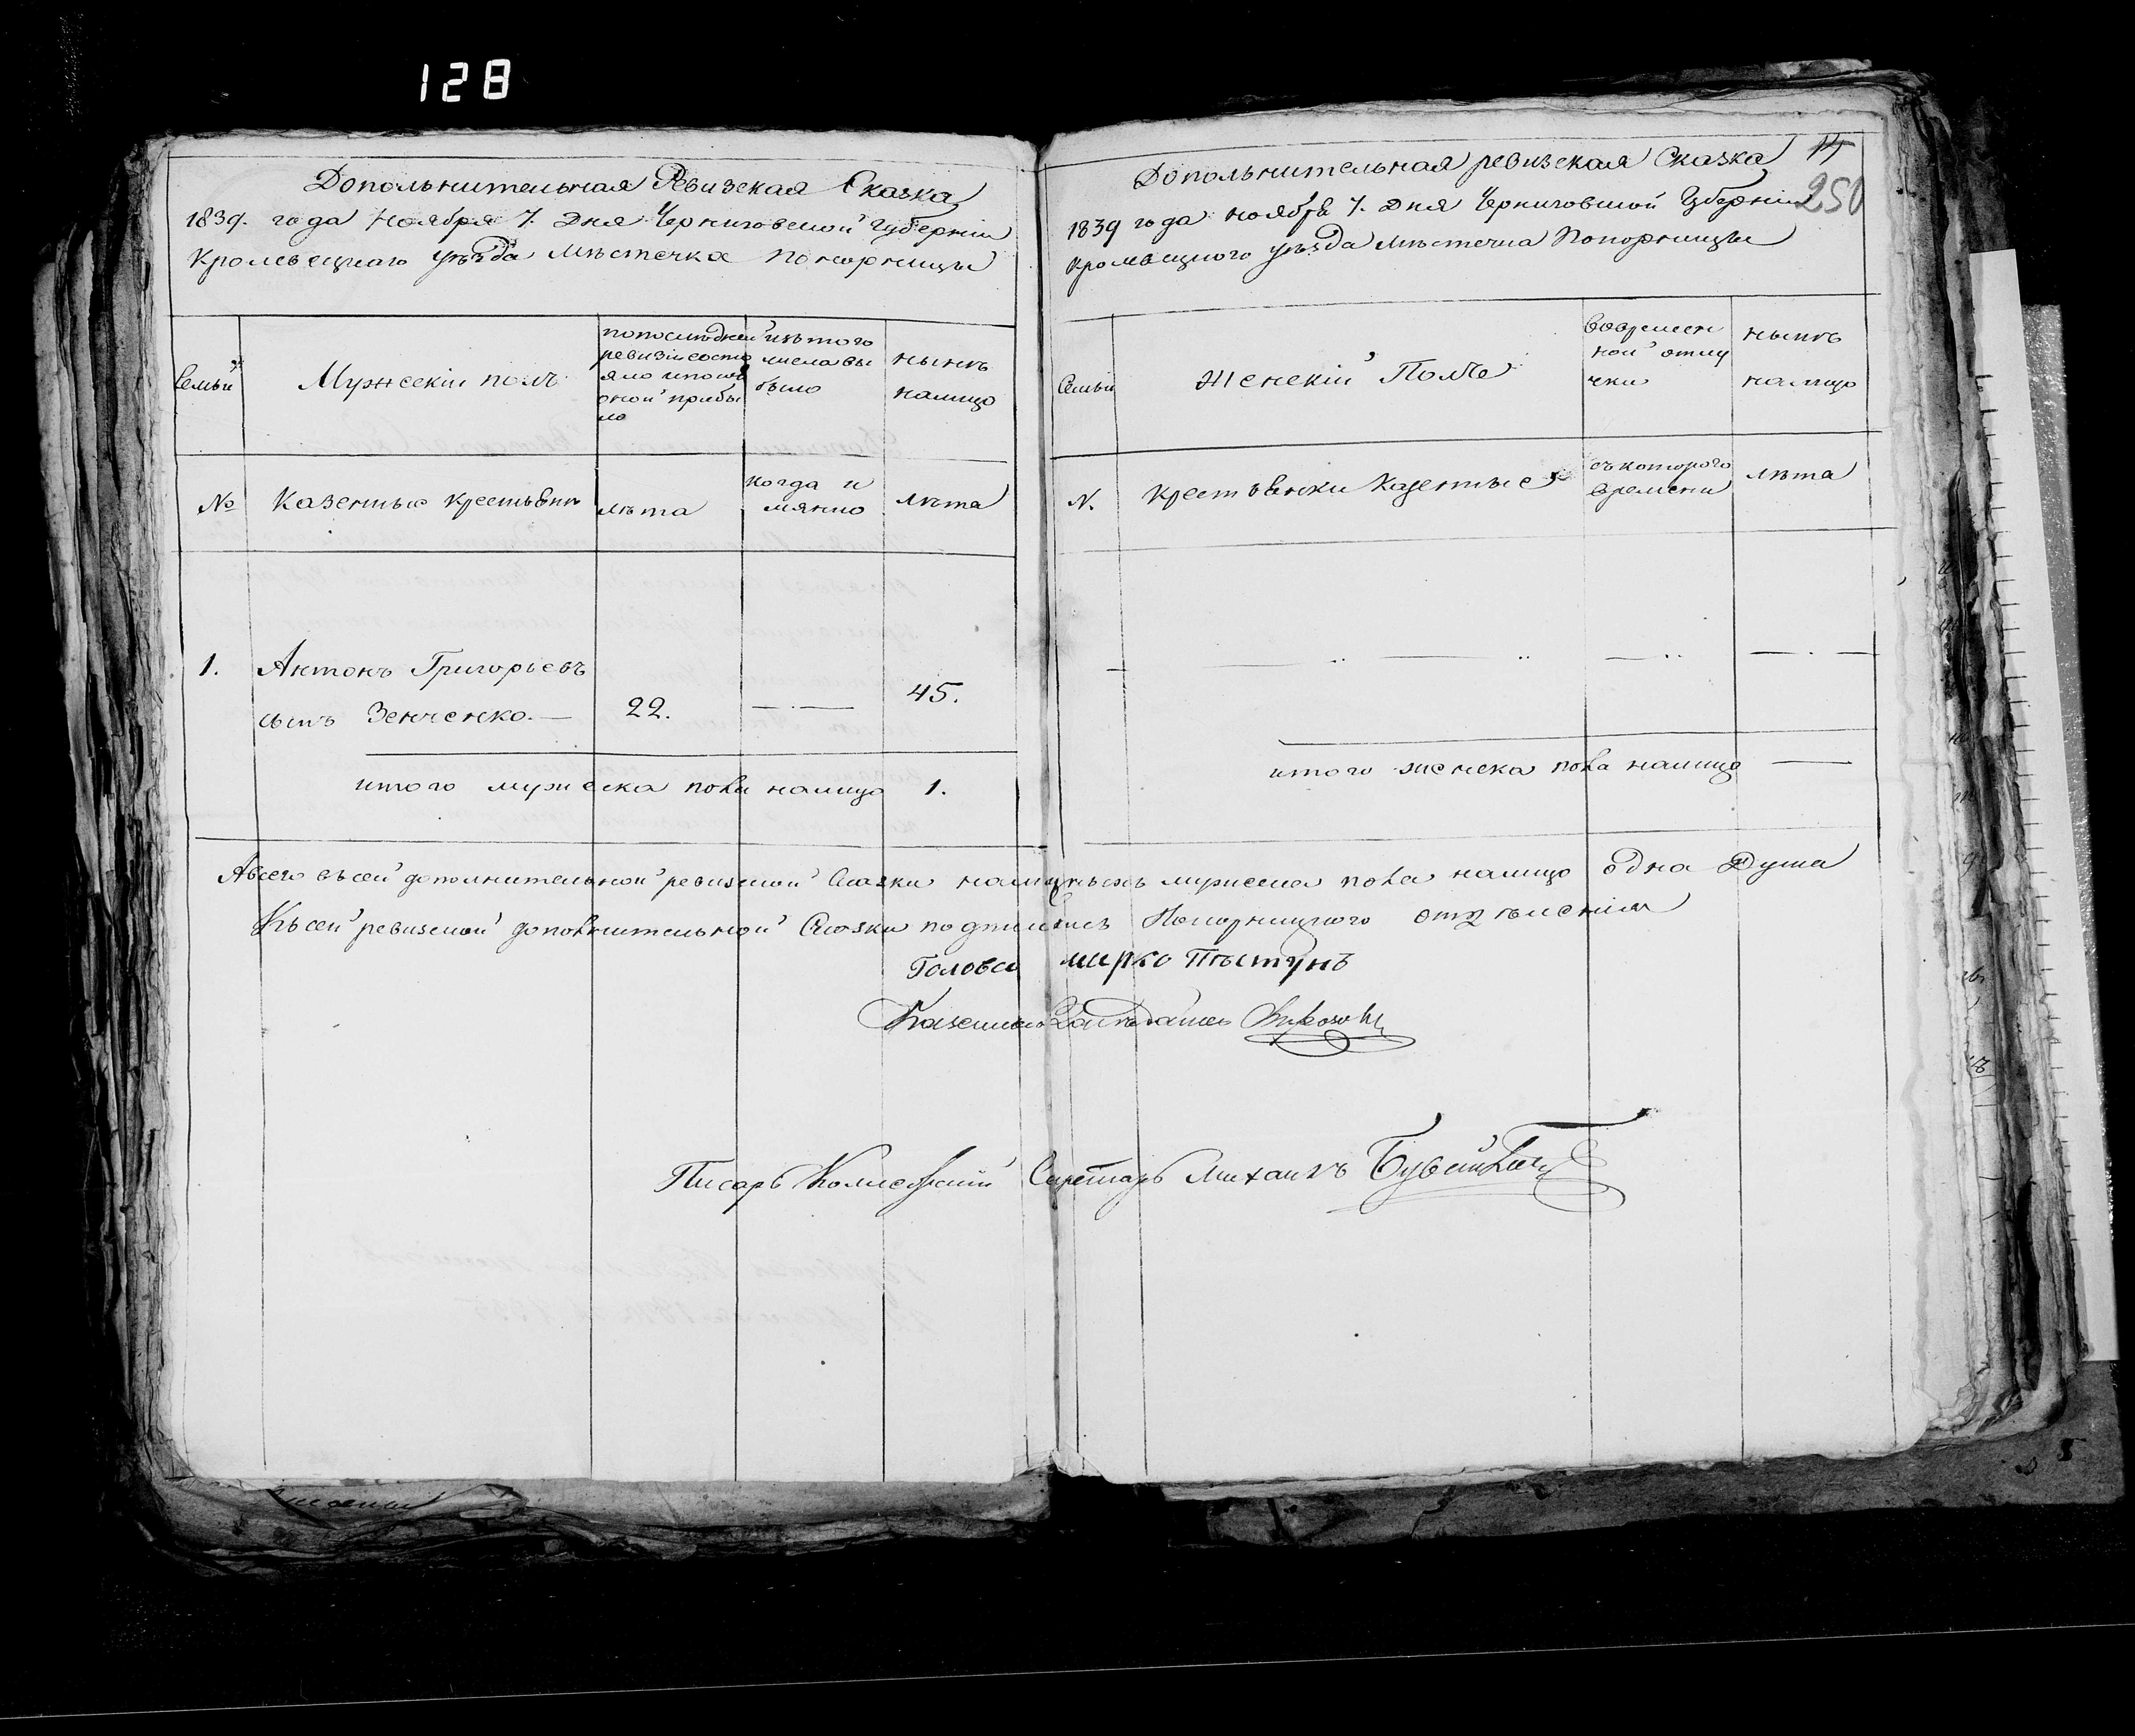 128
Дополнительная Ревизская Сказка
1839. года Ноября 7. дня Черниговской губернии
Кролевецкаго уѣзда мѣстечка Понорницы
Семьи
Мужескій полъ
попослѣдней
ревизіи состо
яло и послѣ
оной прибы
ло
изъ того
числа вы
было
нынѣ
налицо
№
Казенные крестьяне
лѣта
когда и
мянно
лѣта
1.
Антонъ Григорьевъ
сынъ Зенченко. —
22.
— . —
45.
итого мужеска пола налицо 1.
14
250
Дополнительная ревизская Сказка
1839 года ноября 7. дня Черниговской Губерніи
кролевецкого уѣзда мѣстечка Понорницы
Семьи
Женскій Полъ
вовремен
ной отлу
чки
нынѣ
налицо
N.
крестьянки казенные
съ которого
времени
лѣта
итого женска пола налицо —
А всего въ сей дополнительной ревизской Сказки наличныхъ мужеска пола налицо одна Душа
Къ сей ревизской дополнительной Сказки подписались Понорницкого отдѣленія
Голова мирко Пѣстунъ
Писарь Колежскій Секретарь Михаилъ